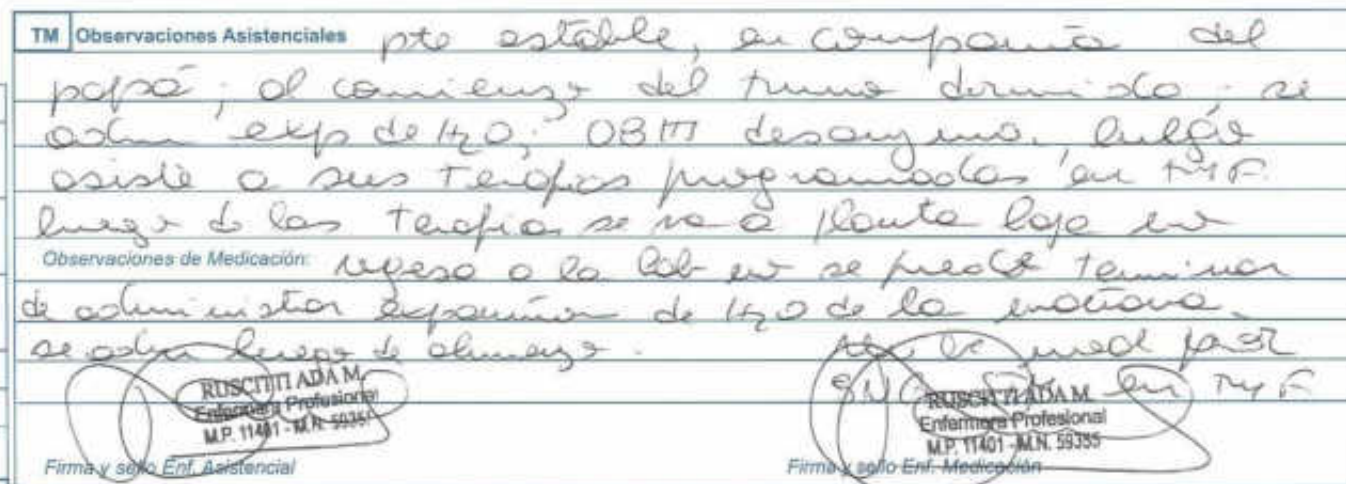 TM Observaciones Asistenciales pte estable, en compañia del
papá; al comienzo del turno dormido. se
adm exp de H2O; OBM desayuno. luego
asiste a sus Terapias programadas en TyF.
luego de las Terapias se va a planta baja
Observaciones de Medicación: regresa a la hab se puede terminar
de administrar expansión de H2O de la mañana.
se adm luego de almuerzo.
med por
SNG en TyF
RUSCITTI ADA M.
Enfermera Profesional
M.P. 11401 - M.N. 59355
RUSCITTI ADA M.
Enfermera Profesional
M.P. 11401 - M.N. 59355
Firma y sello Enf. Asistencial
Firma y sello Enf. Medicación